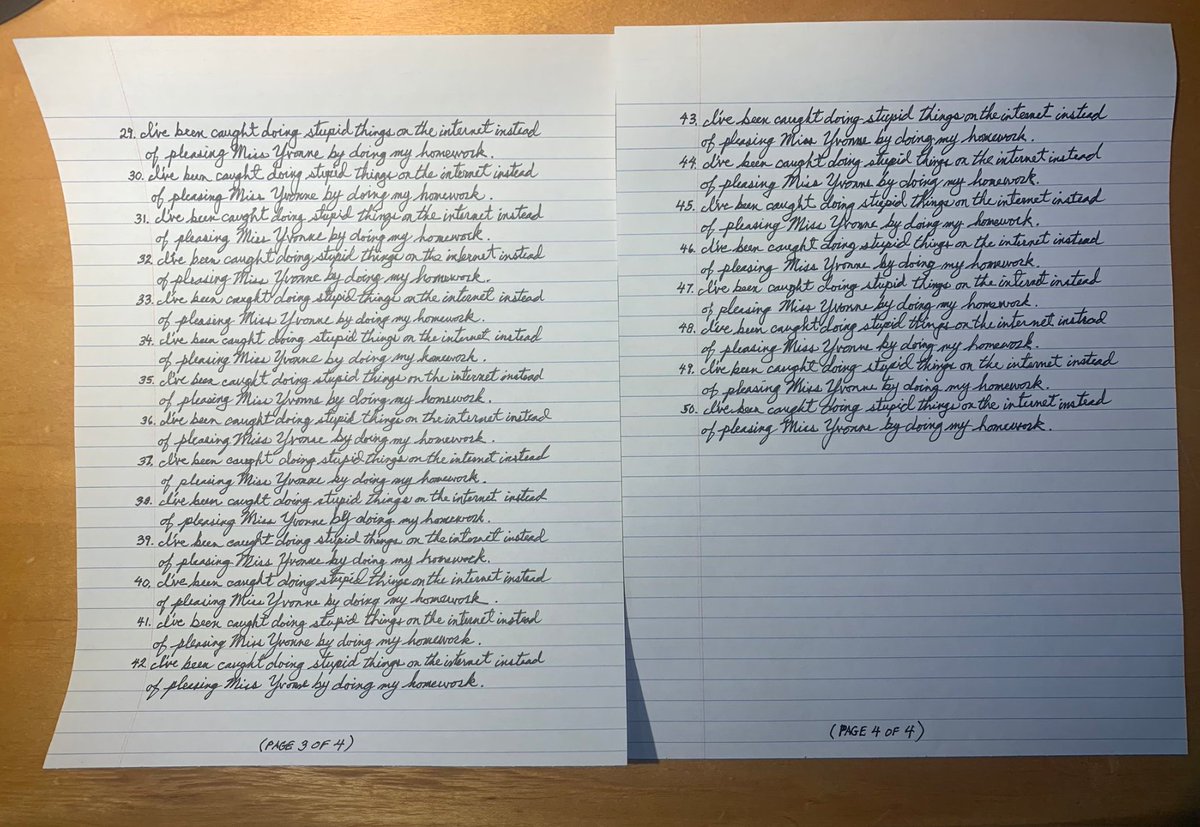 29. I've been caught doing stupid things on the internet instead
of pleasing Miss Yvonne by doing my homework.
30. I've been caught doing stupid things on the internet instead
of pleasing Miss Yvonne by doing my homework.
31. I've been caught doing stupid things on the internet instead
of pleasing Miss Yvonne by doing my homework.
32. I've been caught doing stupid things on the internet instead
of pleasing Miss Yvonne by doing my homework.
33. I've been caught doing stupid things on the internet instead
of pleasing Miss Yvonne by doing my homework.
34. I've been caught doing stupid things on the internet instead
of pleasing Miss Yvonne by doing my homework.
35. I've been caught doing stupid things on the internet instead
of pleasing Miss Yvonne by doing my homework.
36. I've been caught doing stupid things on the internet instead
of pleasing Miss Yvonne by doing my homework.
37. I've been caught doing stupid things on the internet instead
of pleasing Miss Yvonne by doing my homework.
38. I've been caught doing stupid things on the internet instead
of pleasing Miss Yvonne by doing my homework.
39. I've been caught doing stupid things on the internet instead
of pleasing Miss Yvonne by doing my homework.
40. I've been caught doing stupid things on the internet instead
of pleasing Miss Yvonne by doing my homework.
41. I've been caught doing stupid things on the internet instead
of pleasing Miss Yvonne by doing my homework.
42 I've been caught doing stupid things on the internet instead
of pleasing Miss Yvonne by doing my homework.
(PAGE 3 OF 4)
43. I've been caught doing stupid things on the internet instead
of pleasing Miss Yvonne by doing my homework.
44. I've been caught doing stupid things on the internet instead
of pleasing Miss Yvonne by doing my homework.
45. I've been caught doing stupid things on the internet instead
of pleasing Miss Yvonne by doing my homework.
46. I've been caught doing stupid things on the internet instead
of pleasing Miss Yvonne by doing my homework.
47. I've been caught doing stupid things on the internet instead
of pleasing Miss Yvonne by doing my homework.
48. I've been caught doing stupid things on the internet instead
of pleasing Miss Yvonne by doing my homework.
49. I've been caught doing stupid things on the internet instead
of pleasing Miss Yvonne by doing my homework.
50. I've been caught doing stupid things on the internet instead
of pleasing Miss Yvonne by doing my homework.
(PAGE 4 OF 4)